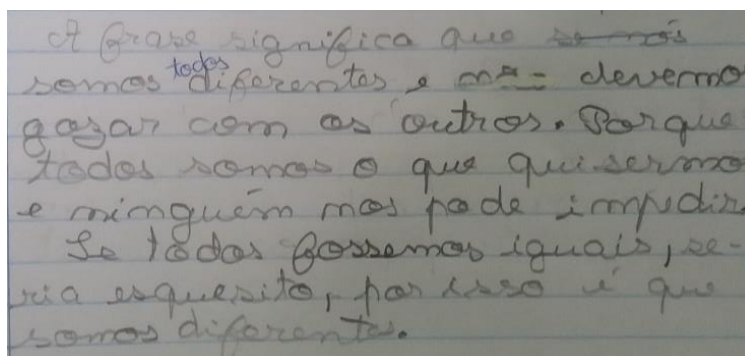 A frase significa que se nós
somos todos diferentes e não devemo
gozar com os outros. Porque
todos somos o que quisermo
e ninguém nos pode impedir.
Se todos fossemos iguais, se-
ria esquesito, por isso é que
somos diferentes.